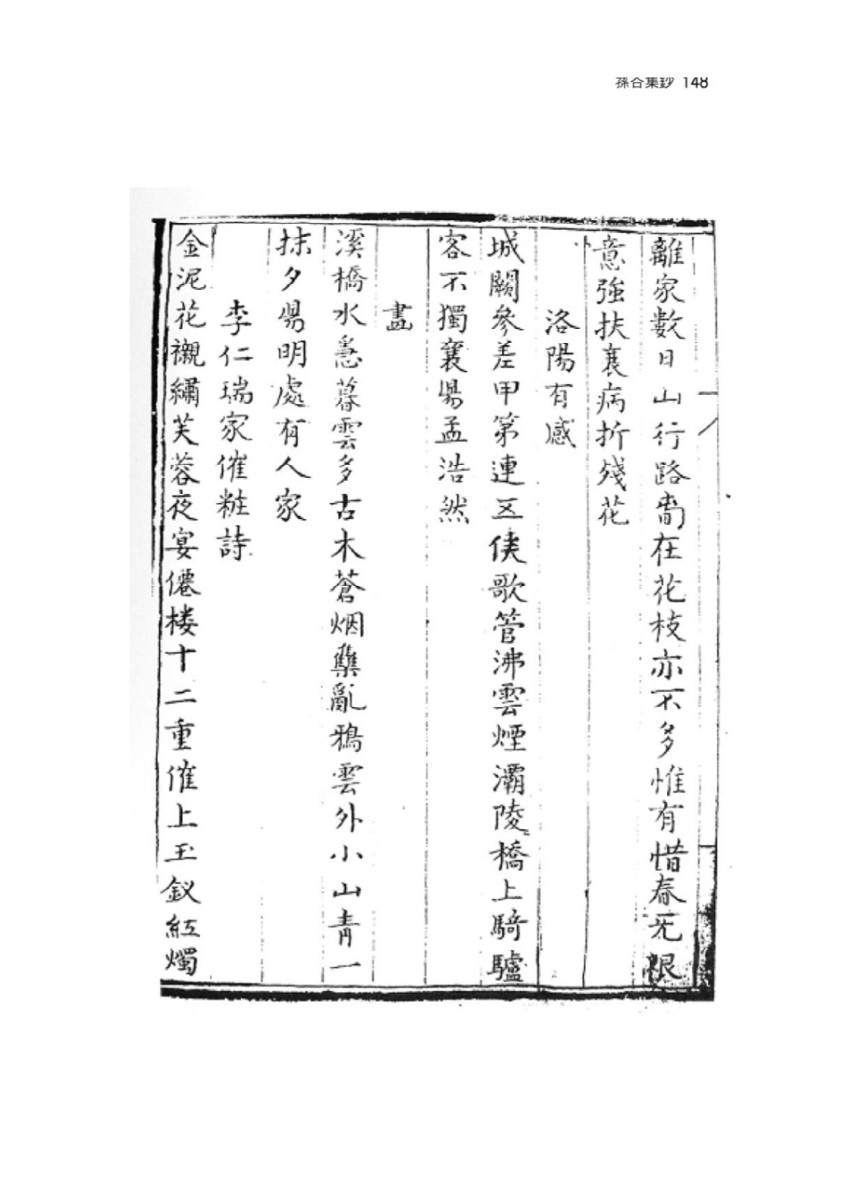 孫谷集鈔 148
離家數日山行路駕在花枝亦不多惟有惜春无限
意強扶衰病折殘花
洛陽有感
城闕參差甲第連五侯歌管沸雲煙灞陵橋上騎驢
客不獨襄陽孟浩然
畵
溪橋水急暮雲多古木蒼烟集亂鴉雲外小山靑一
抹夕陽明處有人家
李仁瑞家催粧詩
金泥花襯繡芙蓉夜宴僊楼十二重催上玉釵紅燭